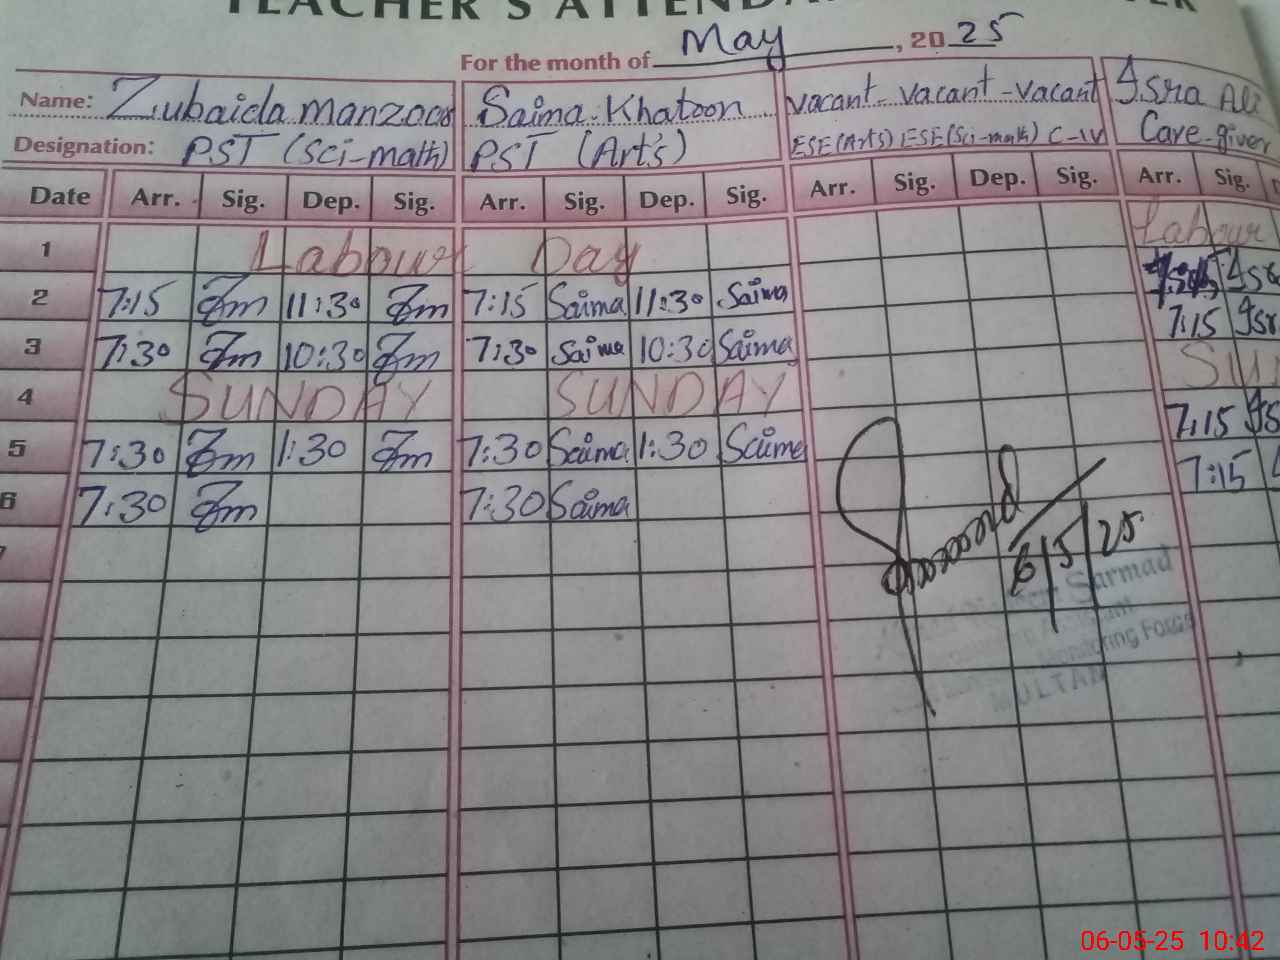 TEACHER'S ATTENDA
For the month of May, 2025
Name: Zubaida Manzoor Saima Khatoon vacant - vacant - vacant Isra Ali
Designation: PST (Sci-math) PST (Art's) ESE(Arts) ESE(Sci-math) C-IV Care-giver
Date Arr. Sig. Dep. Sig. Arr. Sig. Dep. Sig. Arr. Sig. Dep. Sig. Arr. Sig.
1 Labour Day Labour
2 7:15 Zm 11:30 Zm 7:15 Saima 11:30 Saima
3 7:30 Zm 10:30 Zm 7:30 Saima 10:30 Saima 7:15
4 SUNDAY SUNDAY
5 7:30 Zm 1:30 Zm 7:30 Saima 1:30 Saima 7:15
6 7:30 Zm 7:30 Saima 7:15
6/5/25
Sarmad
Monitoring Force
MULTAN
06-05-25 10:42